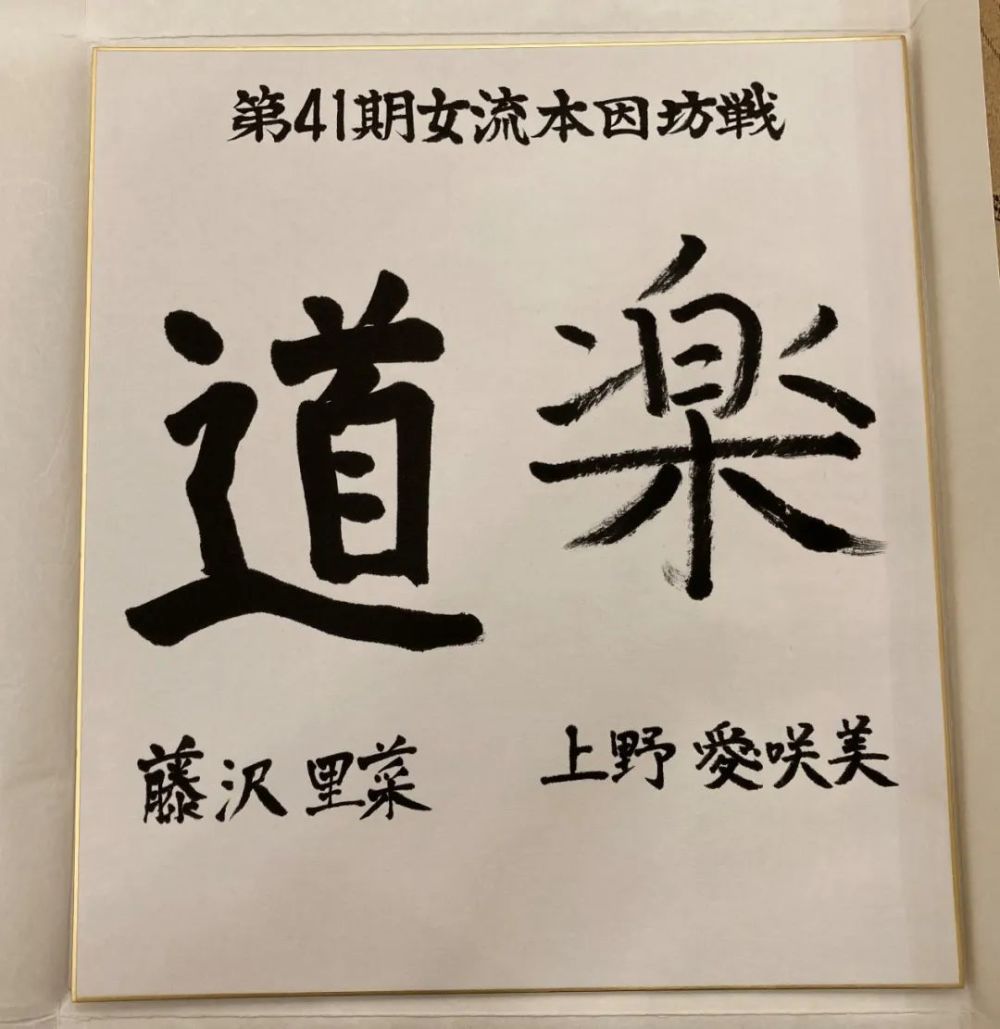 第41期女流本因坊戦
道 楽
藤沢里菜 上野愛咲美